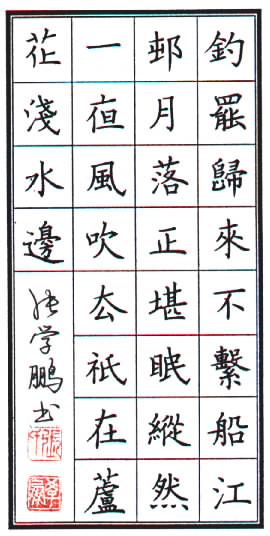 釣罷歸來不繫船江
邨月落正堪眠縱然
一夜風吹去衹在蘆
花淺水邊
張学鵬书